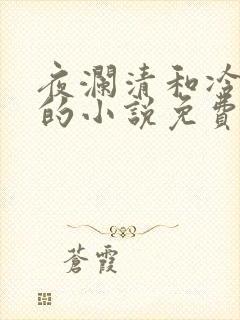 夜瀾清和冷
的小說免費
蒼霞